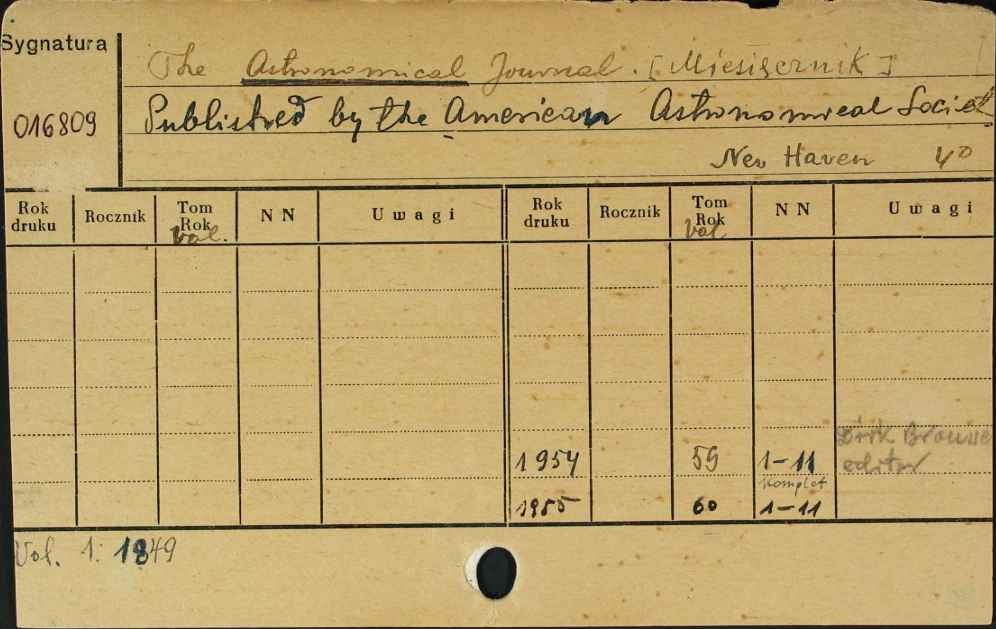 Sygnatura
The Astronomical Journal. [Miesięcznik]
016809
Published by the American Astronomical Societ
New Haven 4°
Rok druku Rocznik Tom Rok Vol. NN Uwagi Rok druku Rocznik Tom Rok Vol NN Uwagi
Dirk Brouwe
1954 59 1-11 editor
Komplet
1955 60 1-11
Vol. 1: 1849